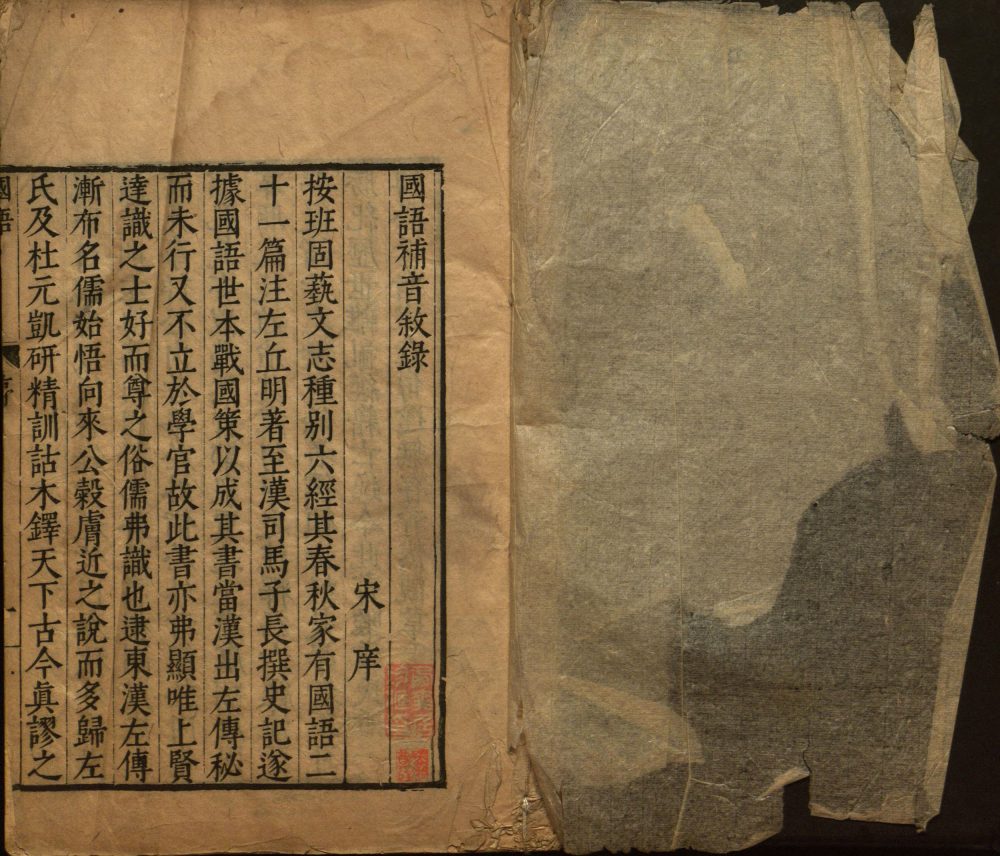 國語補音敘錄
宋庠
按班固蓺文志種别六經其春秋家有國語二
十一篇注左丘明著至漢司馬子長撰史記遂
據國語世本戰國策以成其書當漢出左傳秘
而未行又不立於學官故此書亦弗顯唯上賢
達識之士好而尊之俗儒弗識也逮東漢左傳
漸布名儒始悟向來公穀膚近之說而多歸左
氏及杜元凱研精訓詁木鐸天下古今真謬之
國語
序
一